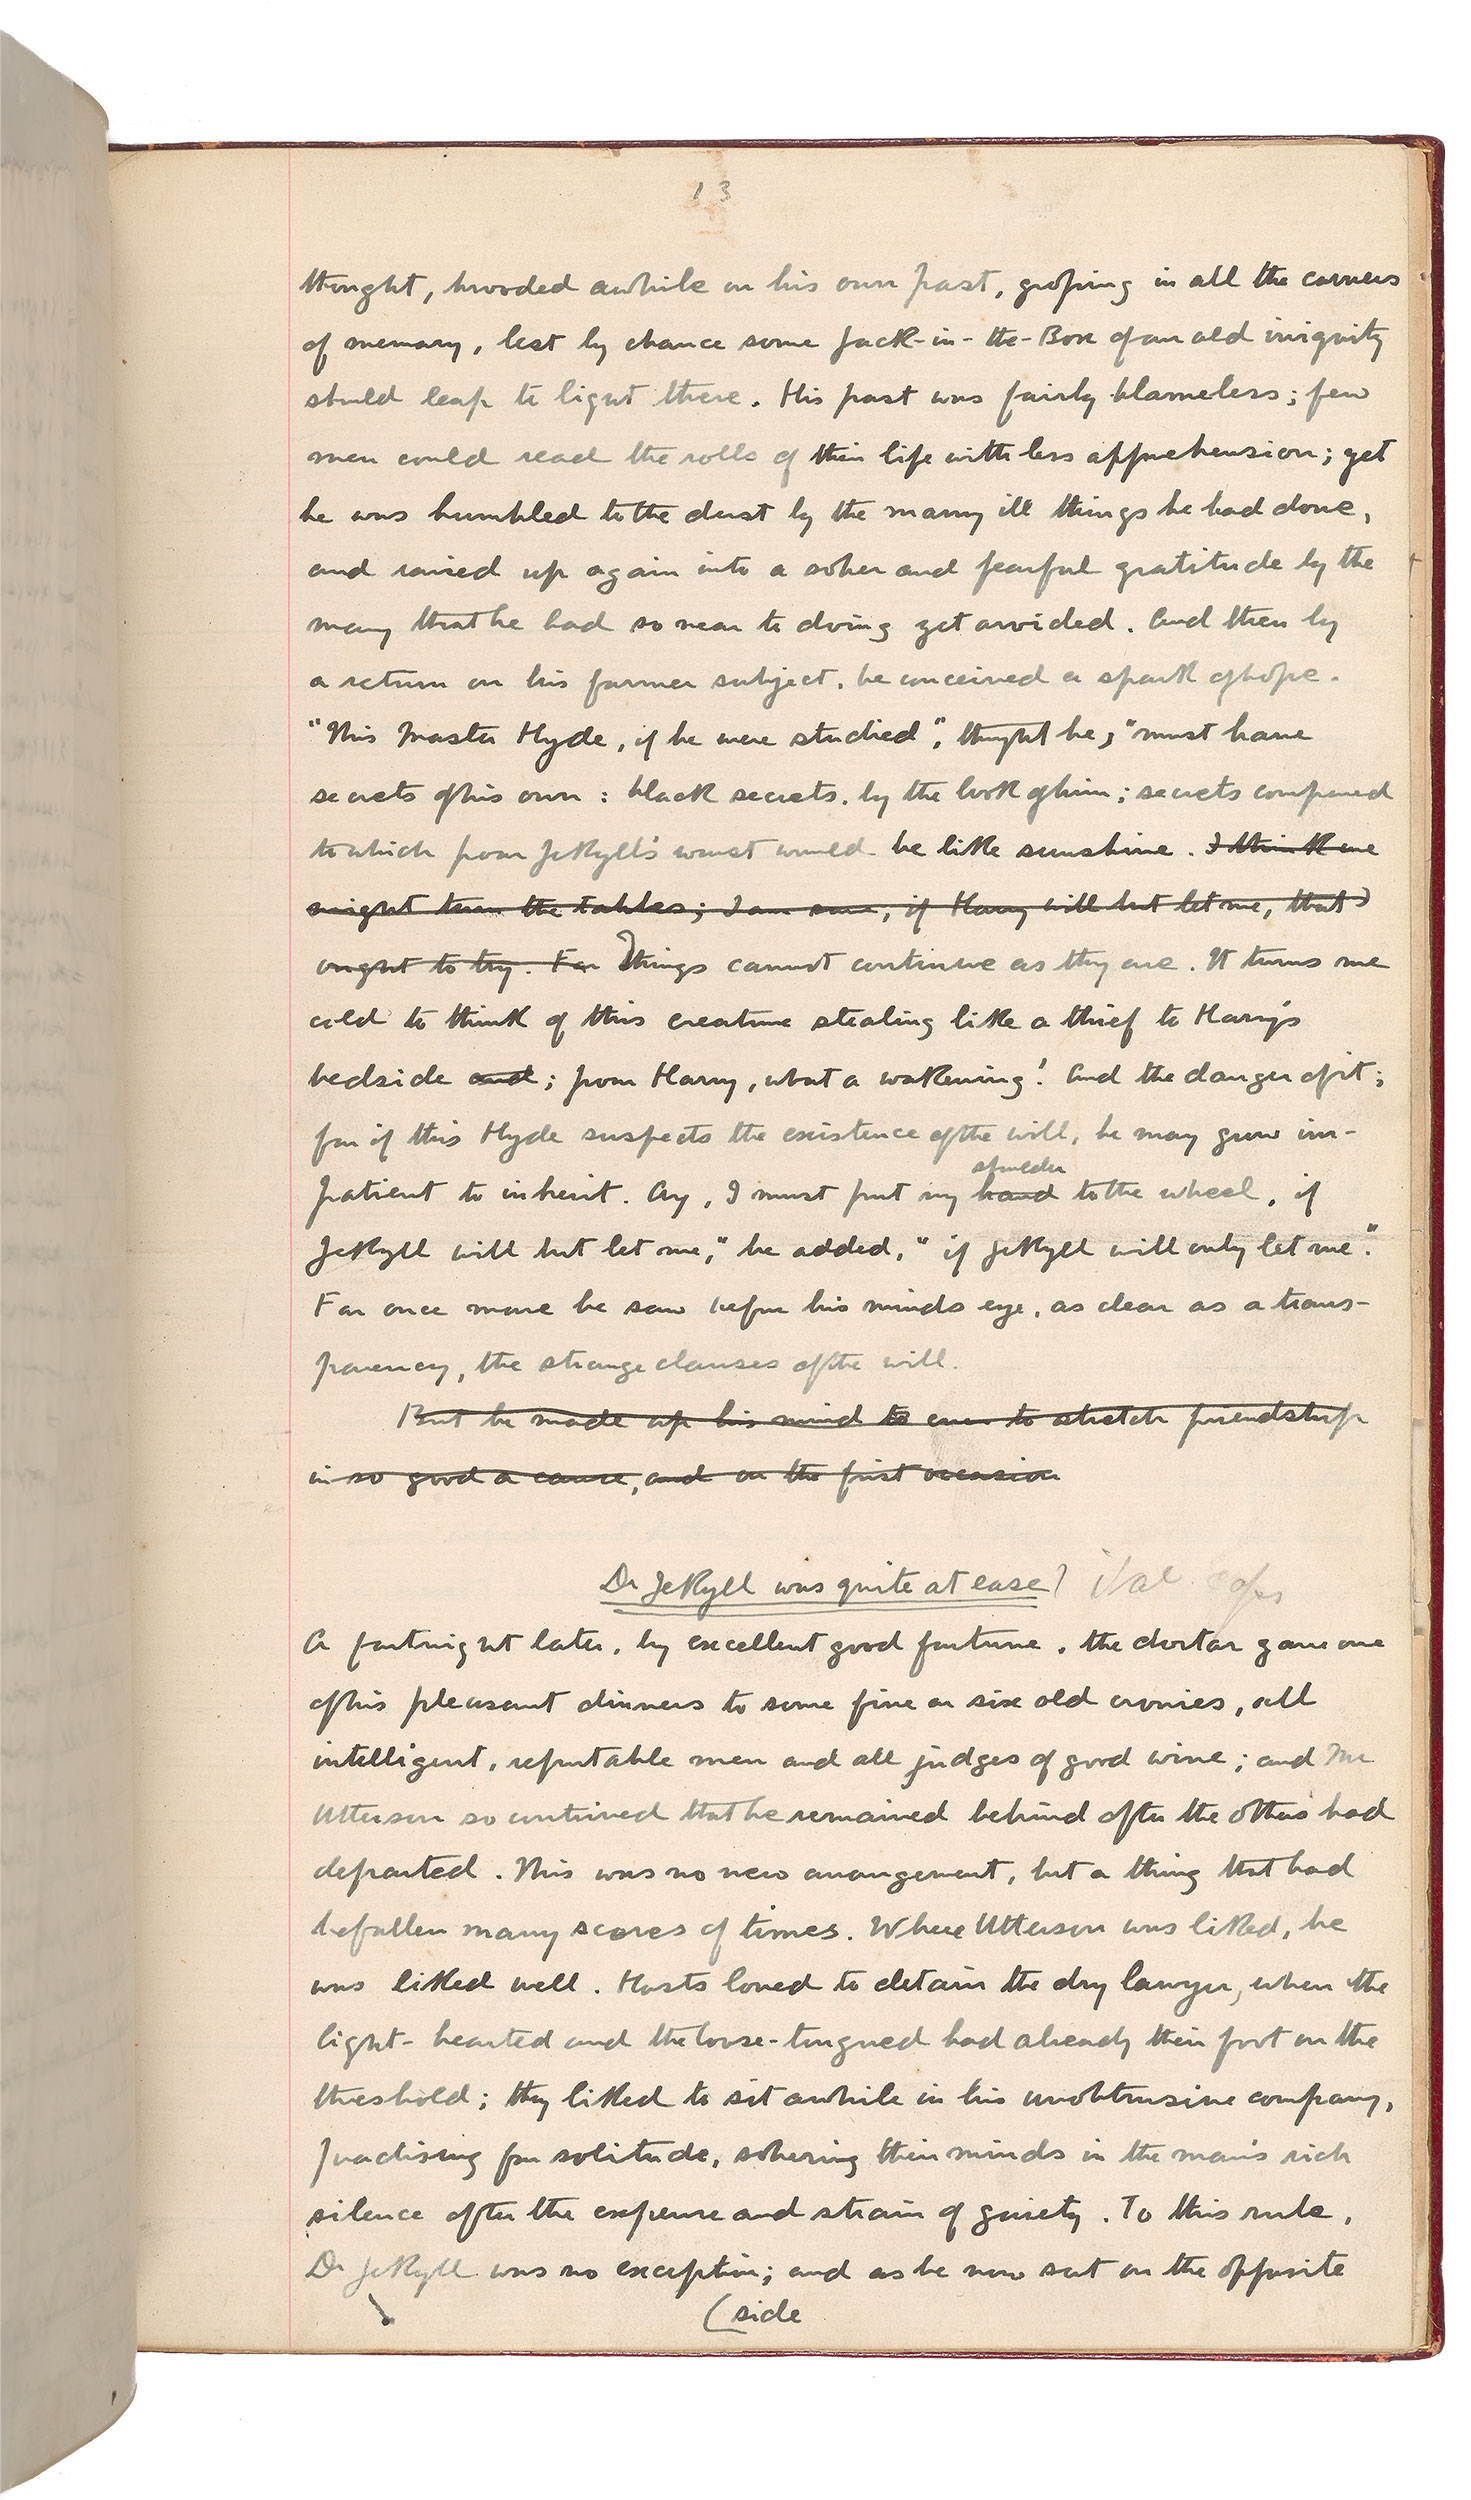 13
thought, brooded awhile on his own past, groping in all the corners
of memory, lest by chance some Jack-in-the-Box of an old iniquity
should leap to light there. His past was fairly blameless; few
men could read the rolls of their life with less apprehension; yet
he was humbled to the dust by the many ill things he had done,
and raised up again into a sober and fearful gratitude by the
many that he had so near to doing yet avoided. And then by
a return on his former subject, he conceived a spark of hope.
"This Master Hyde, if he were studied", thought he, "must have
secrets of his own: black secrets, by the look of him; secrets compared
to which poor Jekyll's worst would be like sunshine. I think one
might turn the tables; I am sure, if Harry will but let me, that I
ought to try. For Things cannot continue as they are. It turns me
cold to think of this creature stealing like a thief to Harry's
bedside and; poor Harry, what a wakening! And the danger of it;
for if this Hyde suspects the existence of the will, he may grow im-
patient to inherit. Ay, I must put my hand to the wheel, if
shoulder
Jekyll will but let me," he added, "if Jekyll will only let me".
For once more he saw before his minds eye, as clear as a trans-
parency, the strange clauses of the will.
But he made up his mind to even to stretch friendship
in so good a cause, and on the first occasion
Dr Jekyll was quite at ease) ital. caps
A fortnight later, by excellent good fortune, the doctor gave one
of his pleasant dinners to some five or six old cronies, all
intelligent, reputable men and all judges of good wine; and Mr
Utterson so contrived that he remained behind after the others had
departed. This was no new arrangement, but a thing that had
befallen many scores of times. Where Utterson was liked, he
was liked well. Hosts loved to detain the dry lawyer, when the
light-hearted and the loose-tongued had already their foot on the
threshold; they liked to sit awhile in his unobtrusive company,
practising for solitude, sobering their minds in the man's rich
silence after the expense and strain of gaiety. To this rule,
Dr Jekyll was no exception; and as he now sat on the opposite
(side